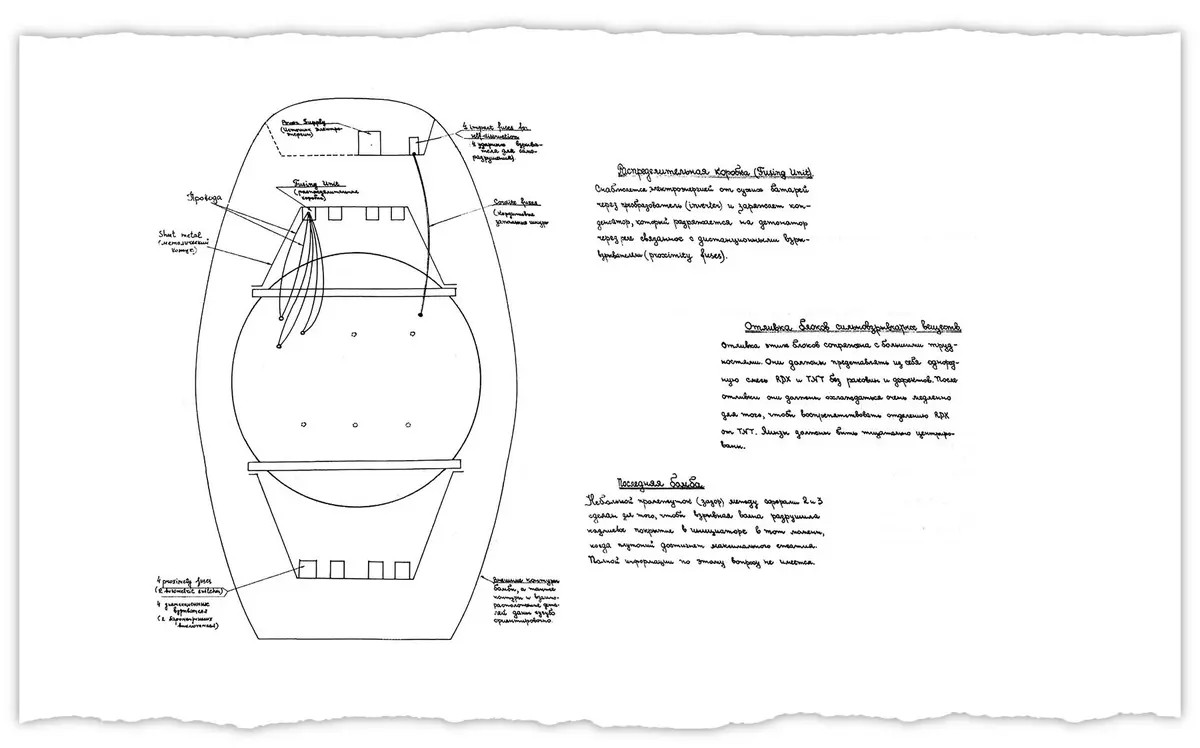 Power Supply
(источник электро-
энергии)
4 impact fuses for
self-destruction
(4 ударного взрыва-
теля для само-
разрушения)
Fusing Unit
(распределительная
коробка)
Провода
Sheet metal
(металлический
кожух)
(кордитовые
4 proximity fuses
(2 barometric switches)
4 дистанционных
взрывателя
(2 барометрических
выключателя)
Внешние контуры
бомбы, а также
контуры и взаимо-
расположение дета-
лей даны сугубо
ориентировочно.
Распределительная коробка (Fusing Unit)
Снабжается электроэнергией от сухих батарей
через преобразователь (inverter) и заряжает кон-
денсатор, который разряжается на детонатор
через реле связанное с дистанционными взры-
взрывателем (proximity fuses).
Отливка блоков сильновзрывчатых веществ
Отливка этих блоков сопряжена с большими труд-
ностями. Они должны представлять из себя однород-
ную смесь RDX и TNT без раковин и дефектов. После
отливки они должны охлаждаться очень медленно
для того, чтобы воспрепятствовать отделению RDX
от TNT. Линзы должны быть тщательно центриро-
ваны.
Последняя бомба.
Небольшой промежуток (зазор) между сферами 2 и 3
сделан для того, чтобы взрывная волна разрушила
покрытие в инициаторе в тот момент,
когда плутоний достигнет максимального сжатия.
Полной информации по этому вопросу не имеется.